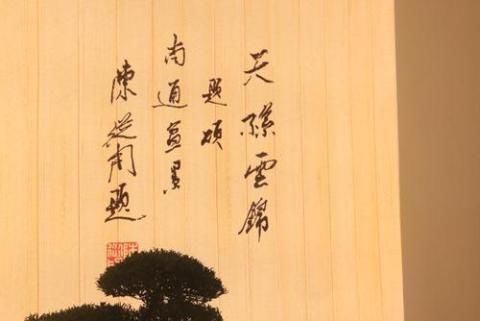 天孫雲錦
題碩
南通盆景
陳從周題